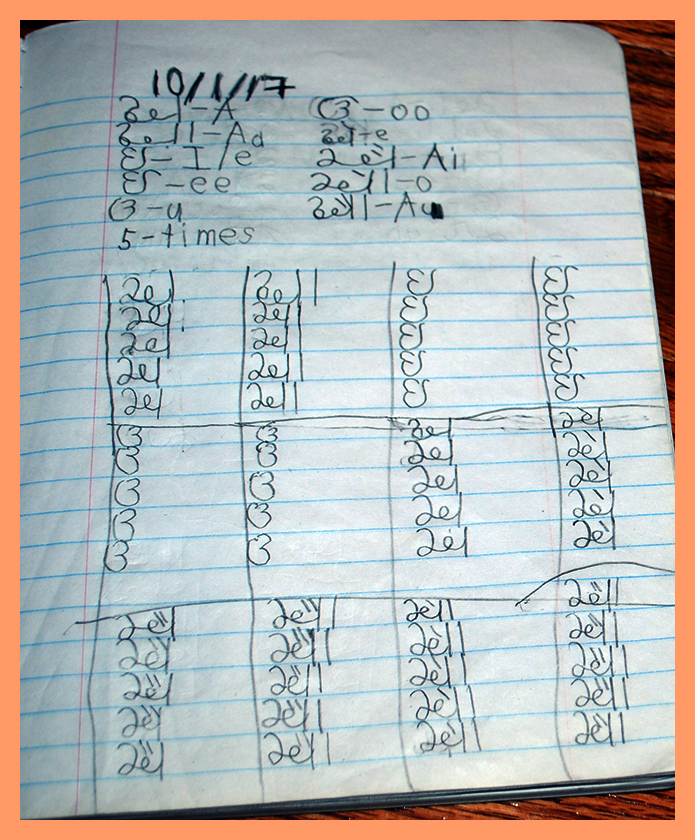 10/1/17
અ-A ઊ-oo
આ-Aa એ-e
ઇ-I/e ઐ-Ai
ઈ-ee ઓ-o
ઉ-u ઔ-Au
5-times
અ આ ઇ ઈ
અ આ ઇ ઈ
અ આ ઇ ઈ
અ આ ઇ ઈ
અ આ ઇ ઈ
ઉ ઊ અ એ
ઉ ઊ અ એ
ઉ ઊ અ એ
ઉ ઊ અ એ
ઉ ઊ અ એ
ઐ ઔ ઓ ઔ
ઐ ઔ ઓ ઓ
ઐ ઔ ઓ ઔ
ઐ ઔ ઓ ઔ
ઐ ઔ ઓ ઔ